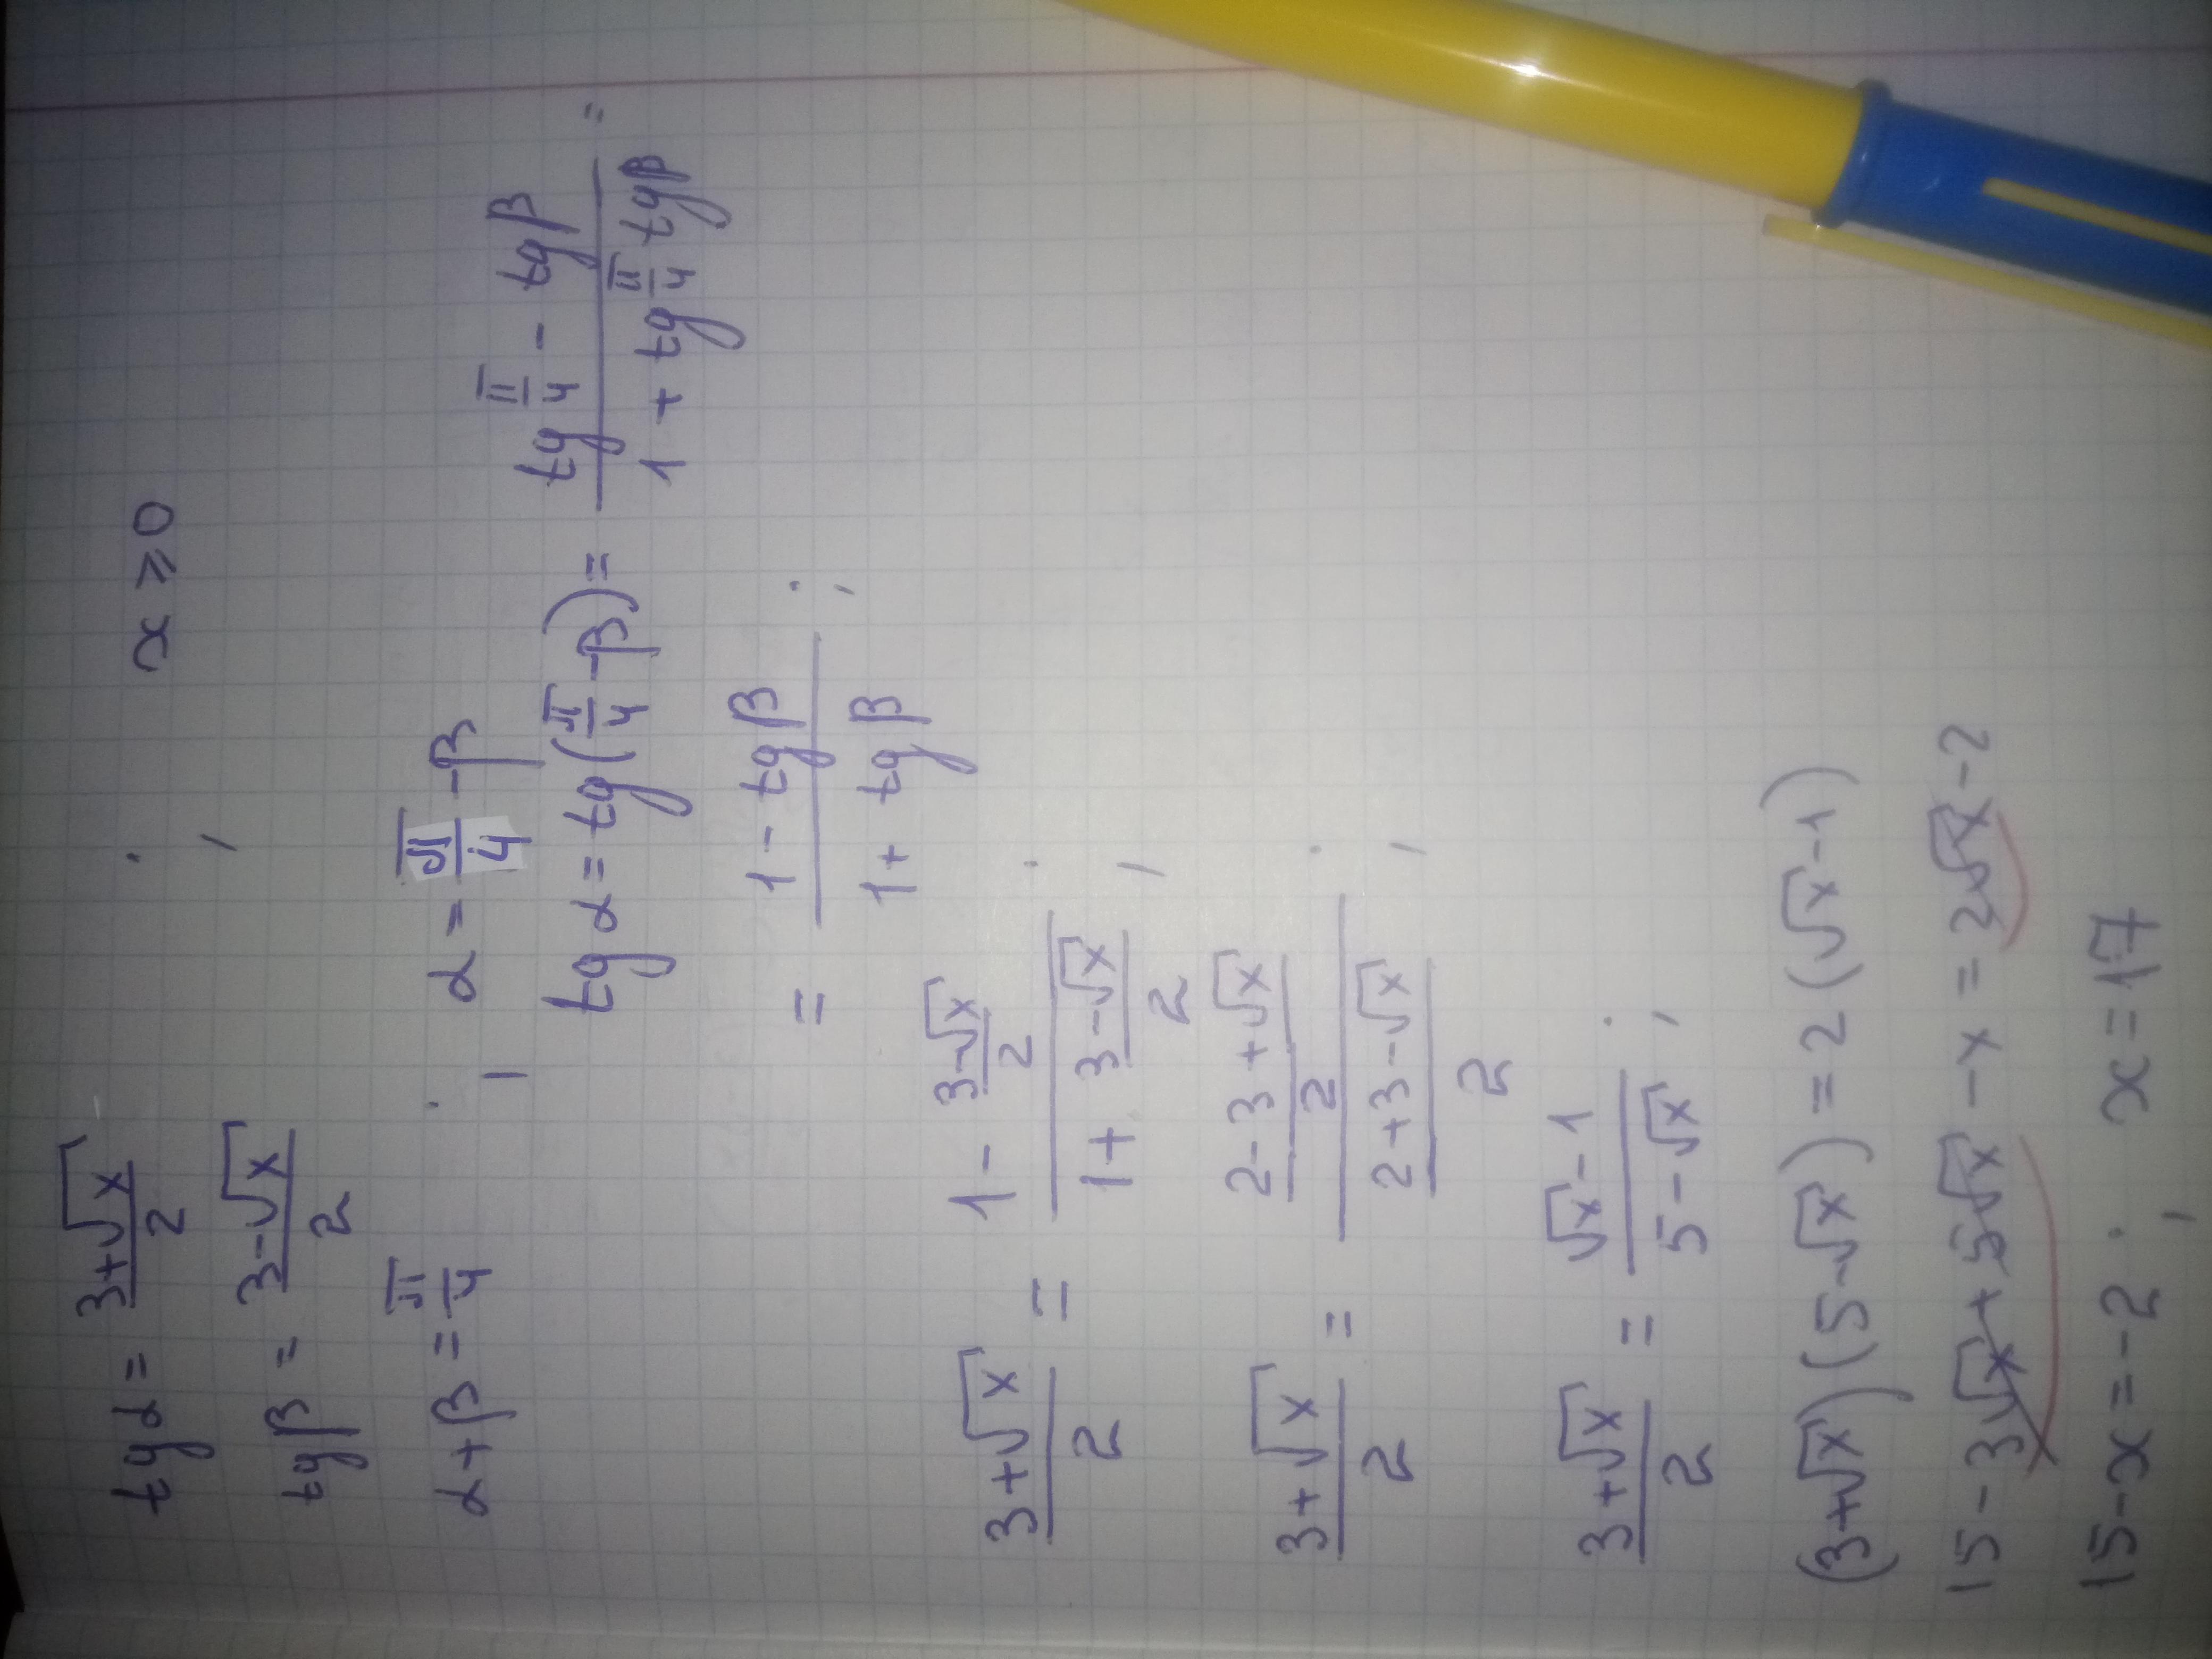 tg α = (3+√x)/2 ; x ⩾ 0
tg β = (3-√x)/2
α+β = π/4 ; α = π/4 - β
tg α = tg(π/4 - β) = (tg π/4 - tg β)/(1 + tg π/4 tg β) =
= (1 - tg β)/(1 + tg β) ;
(3+√x)/2 = (1 - (3-√x)/2)/(1 + (3-√x)/2) ;
(3+√x)/2 = ((2-3+√x)/2)/((2+3-√x)/2) ;
(3+√x)/2 = (√x-1)/(5-√x) ;
(3+√x)(5-√x) = 2(√x-1)
15 - 3√x + 5√x - x = 2√x - 2
15-x = -2 ; x = 17